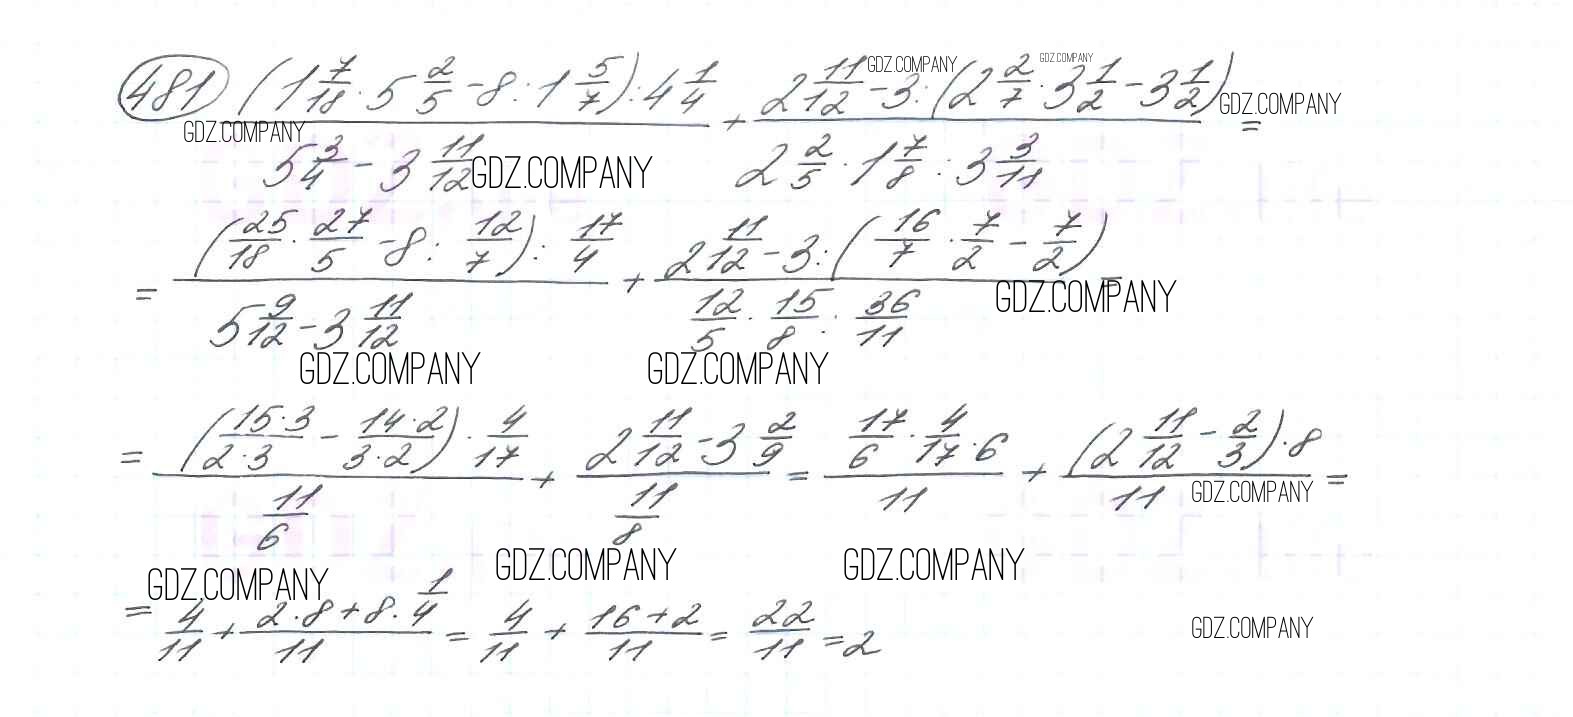 481 (1 7/18 · 5 2/5 - 8 : 1 5/7) : 4 1/4 / 5 3/4 - 3 11/12 + 2 11/12 - 3 : (2 2/7 · 3 1/2 - 3 1/2) / 2 2/5 · 1 7/8 : 3 3/11 =
GDZ.COMPANY GDZ.COMPANY GDZ.COMPANY GDZ.COMPANY GDZ.COMPANY
= (25/18 · 27/5 - 8 : 12/7) : 17/4 / 5 9/12 - 3 11/12 + 2 11/12 - 3 : (16/7 · 7/2 - 7/2) / 12/5 · 15/8 : 36/11 =
GDZ.COMPANY
GDZ.COMPANY GDZ.COMPANY
= (15·3/2·3 - 14·2/3·2) · 4/17 / 11/6 + 2 11/12 - 3 2/9 / 11/8 = 17/6 · 4/17 · 6 / 11 + (2 11/12 - 2/3) · 8 / 11 =
GDZ.COMPANY
GDZ.COMPANY GDZ.COMPANY GDZ.COMPANY
= 4/11 + 2·8 + 8 · 1/4 / 11 = 4/11 + 16 + 2 / 11 = 22/11 = 2
GDZ.COMPANY